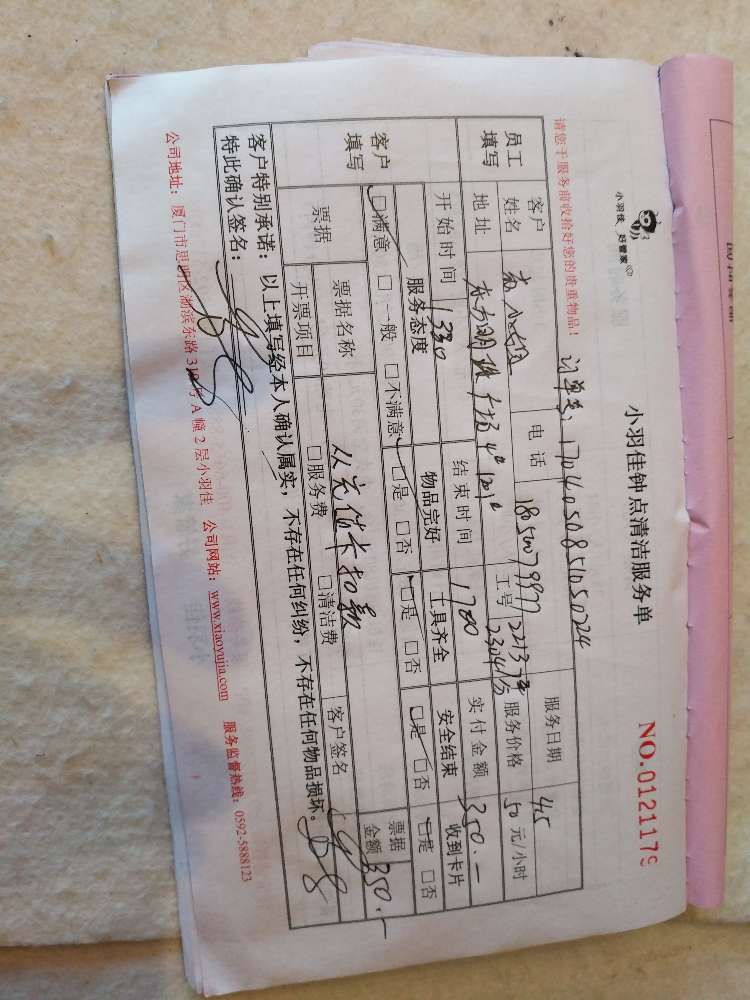 小羽佳 好管家
小羽佳钟点清洁服务单
NO.0121179
请您于服务前收拾好您的贵重物品！
订单号：1704050851050224
员工填写
客户姓名
小姐
电话
18050079977
服务日期
4.5
地址
东方明珠广场4#
工号
2213
2304
服务价格
50元/小时
开始时间
1330
结束时间
1700
实付金额
350.—
客户填写
服务态度
物品完好
工具齐全
安全结束
收到卡片
□满意 □一般 □不满意
□是 □否
□是 □否
□是 □否
□是 □否
票据
票据名称
从充值卡扣款
票据金额
350.—
开票项目
□服务费 □清洁费
客户签名
客户特别承诺：以上填写经本人确认属实，不存在任何纠纷，不存在任何物品损坏。
特此确认签名：
公司地址：厦门市思明区湖滨东路319号A幢2层小羽佳 公司网站：www.xiaoyujia.com 服务监督热线：0592-5888123